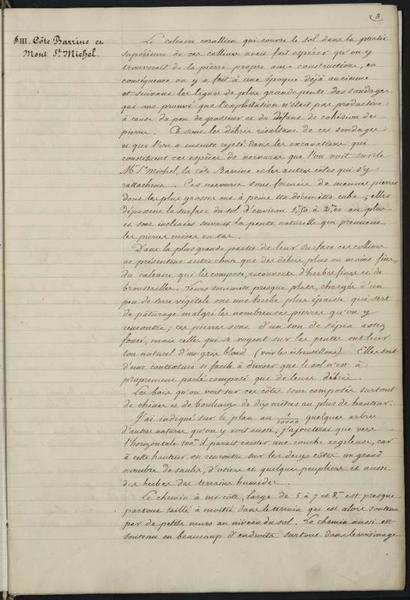 8.
§ III. Côte Barrine et
Mont St. Michel.
Le calcaire corallien qui couvre le sol dans la partie
supérieure de ces collines avait fait espérer qu'on y
trouverait de la pierre propre aux constructions, en
conséquence on y a fait à une époque déjà ancienne
et suivant les lignes de plus grande pente des sondages
qui ont prouvé que l'exploitation n'était pas productive
à cause du peu de grosseur et du défaut de cohésion des
pierres. Ce sont les débris résultant de ces sondages
et que l'on a ensuite rejetés dans les excavations qui
constituent ces espèces de nervures que l'on voit sur le
Mt. St. Michel, la côte Barrine et les autres côtes qui s'y
rattachent. Ces nervures sont formées de menues pierres
dont les plus grosses ont à peine un décimètre cube; elles
dépassent la surface du sol d'environ 1m,50 à 2m,00 au plus
et sont inclinées suivant la pente naturelle que prennent
les pierres mises en tas.
Dans la plus grande partie de leur surface ces collines
ne présentent autre chose que des débris plus ou moins fins
du calcaire qui les compose, recouverts d'herbes fines et de
broussailles. Leurs sommets presque plats, chargés d'un
peu de terre végétale ont une herbe plus épaisse qui sert
de pâturage malgré les nombreuses pierres qu'on y
rencontre; ces pierres sont d'un ton de sépia assez
foncé, mais celles qui se voyent sur les pentes ont leur
ton naturel d'un gris blond (voir les échantillons). Elles sont
d'une contexture si facile à diviser que le sol n'est à
proprement parler composé que de leurs débris.
Les bois qu'on voit sur ces côtes sont composés surtout
de chênes et de bouleaux de dix mètres au plus de hauteur.
J'ai indiqué sur le plan au 1/10000 quelques arbres
d'autre nature qu'on y voit aussi; j'ajouterai que vers
l'horizontale 100m il paraît exister une couche argileuse, car
à cette hauteur on rencontre sur les deux côtes un grand
nombre de saules, d'osiers et quelques peupliers et aussi
des herbes des terrains humides.
Le chemin à mi côte, large de 5 à 7 et 8m est presque
partout taillé à moitié dans le terrain qui est alors soutenu
par de petits murs au niveau du sol. Le chemin aussi est
soutenu en beaucoup d'endroits surtout dans le voisinage